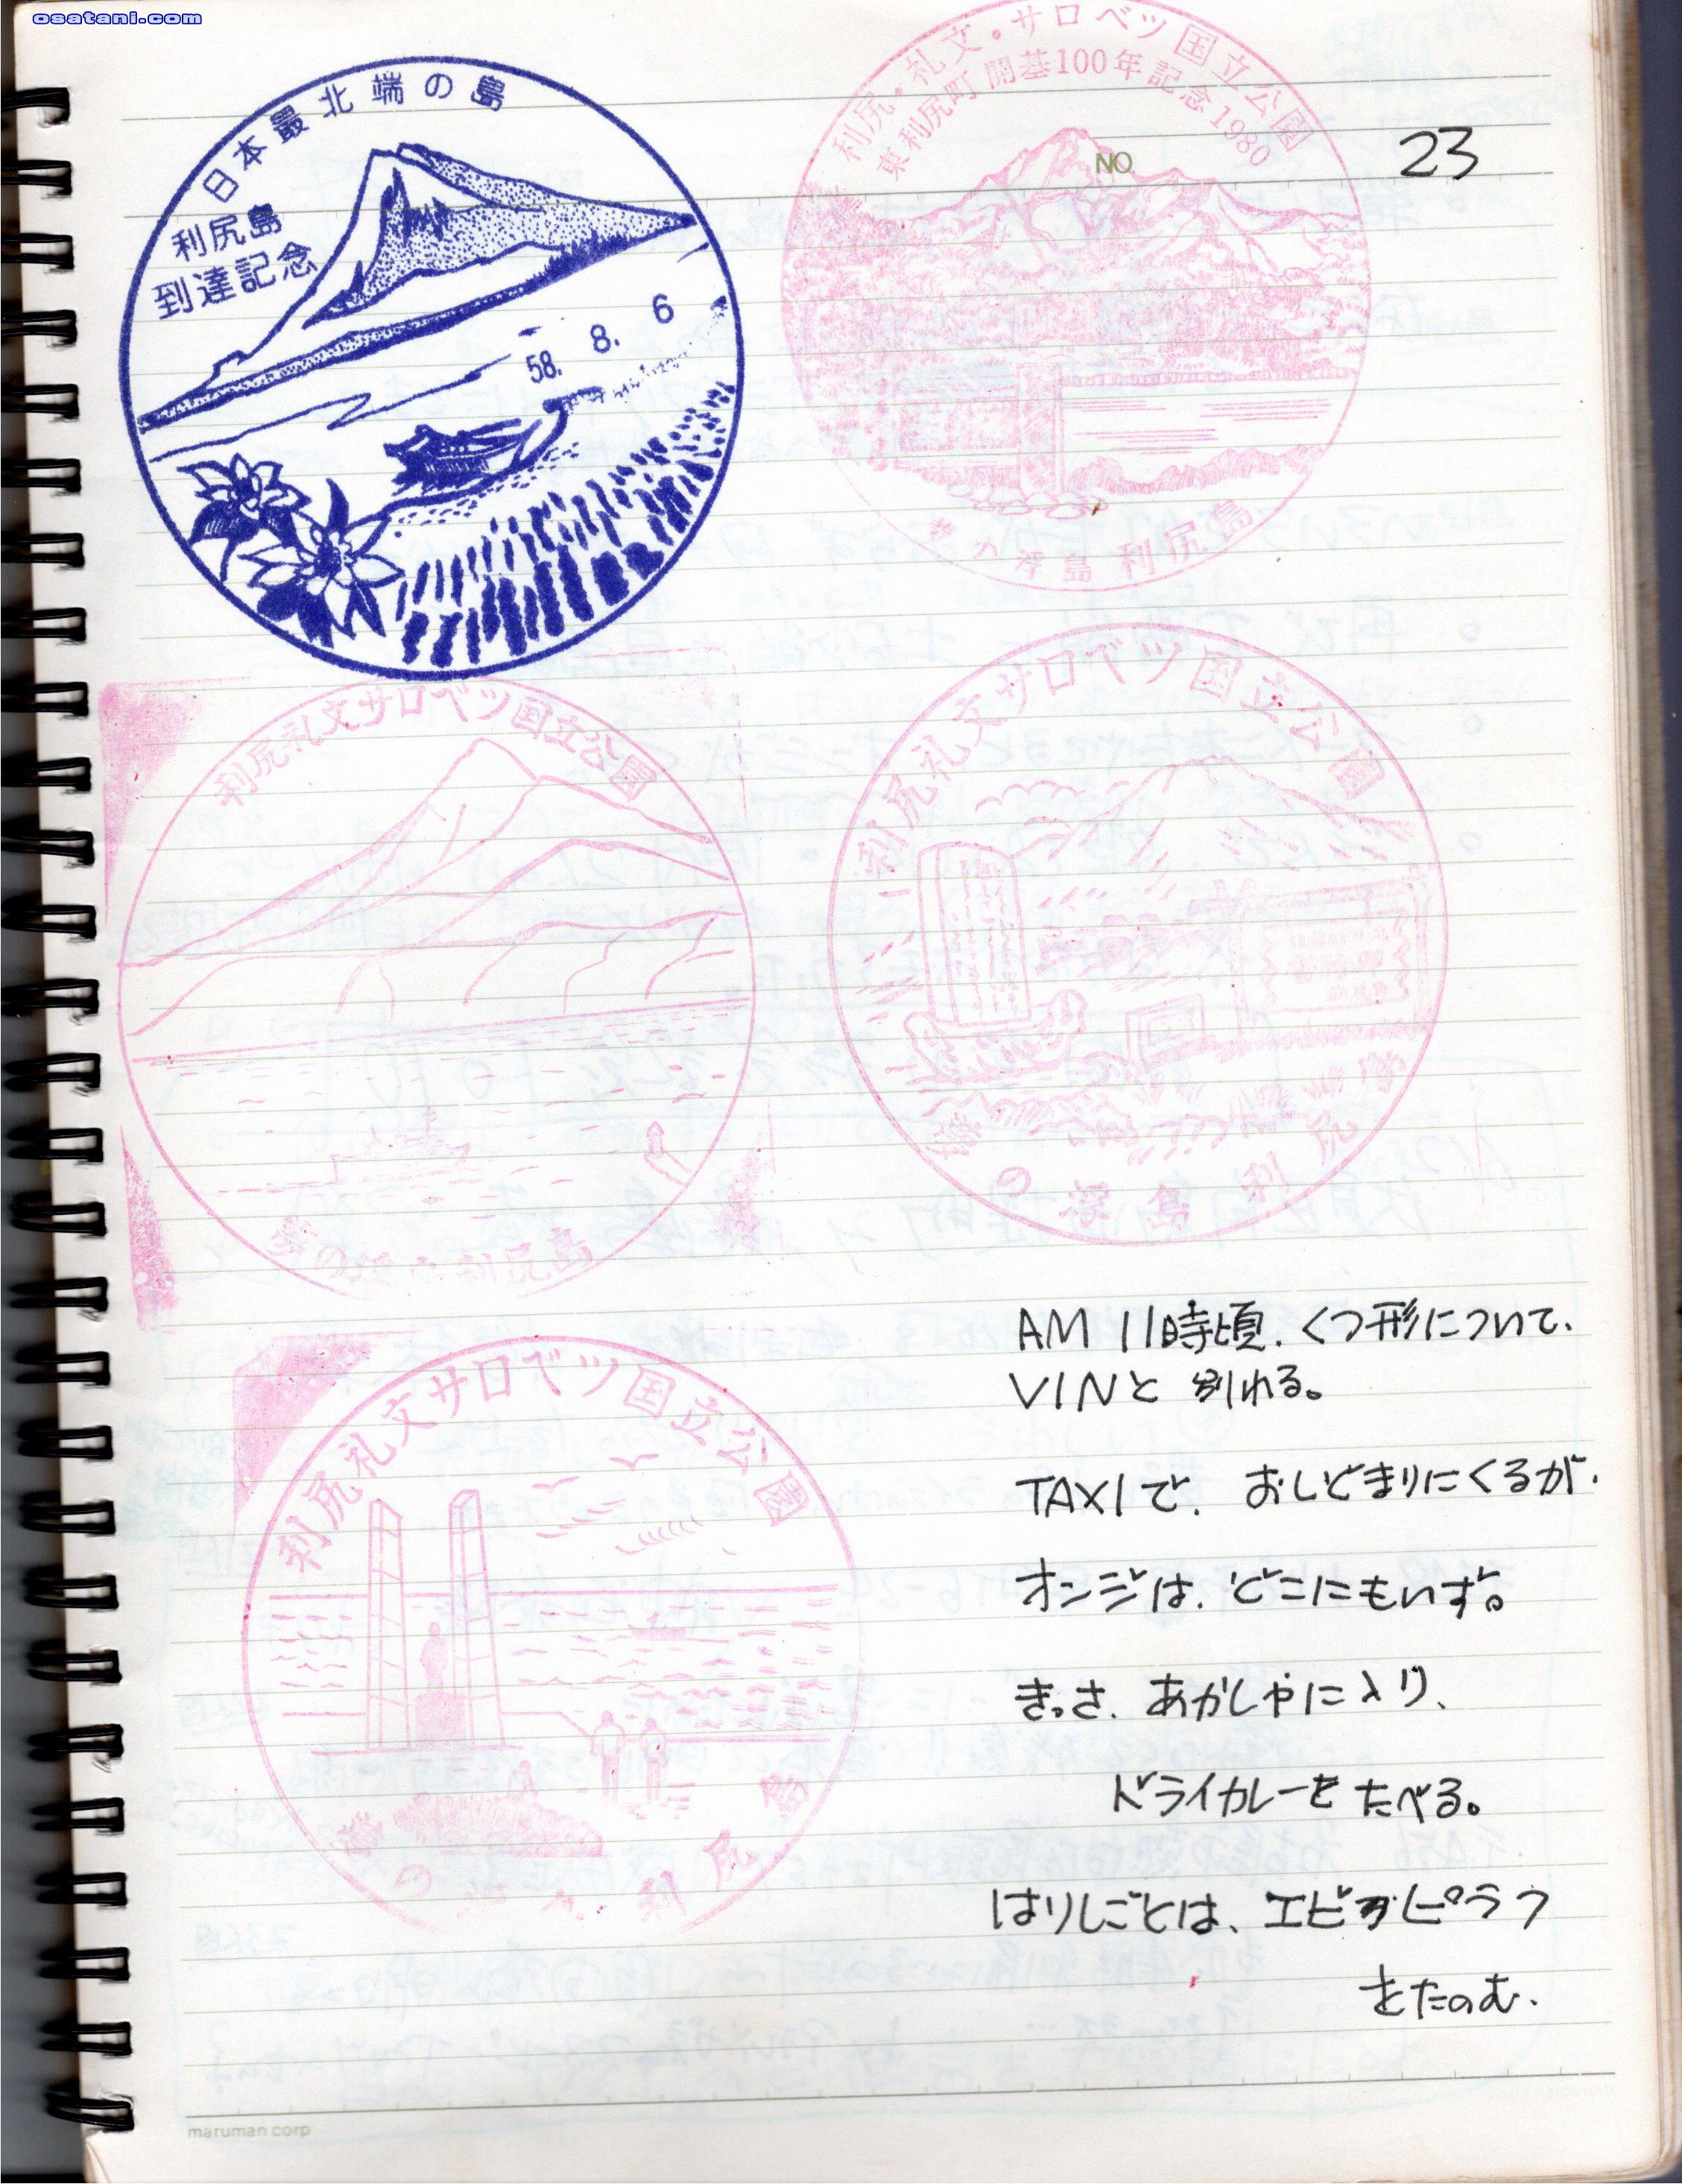 osatani.com
日本最北端の島
利尻島
到達記念
58. 8. 6
利尻・礼文・サロベツ国立公園
東利尻町 開基100年記念1980
NO.
23
の浮島 利尻島
利尻礼文サロベツ国立公園
利尻島
利尻礼文サロベツ国立公園
の浮島利尻
AM 11時頃、くつ形について、
VINと別れる。
利尻礼文サロベツ国立公園
の 利尻島
TAXIで、おしどまりにくるが、
オンジは、どこにもいず。
きっさ、あかしやに入り、
ドライカレーを たべる。
はりしごとは、エビピラフ
をたのむ、
maruman corp